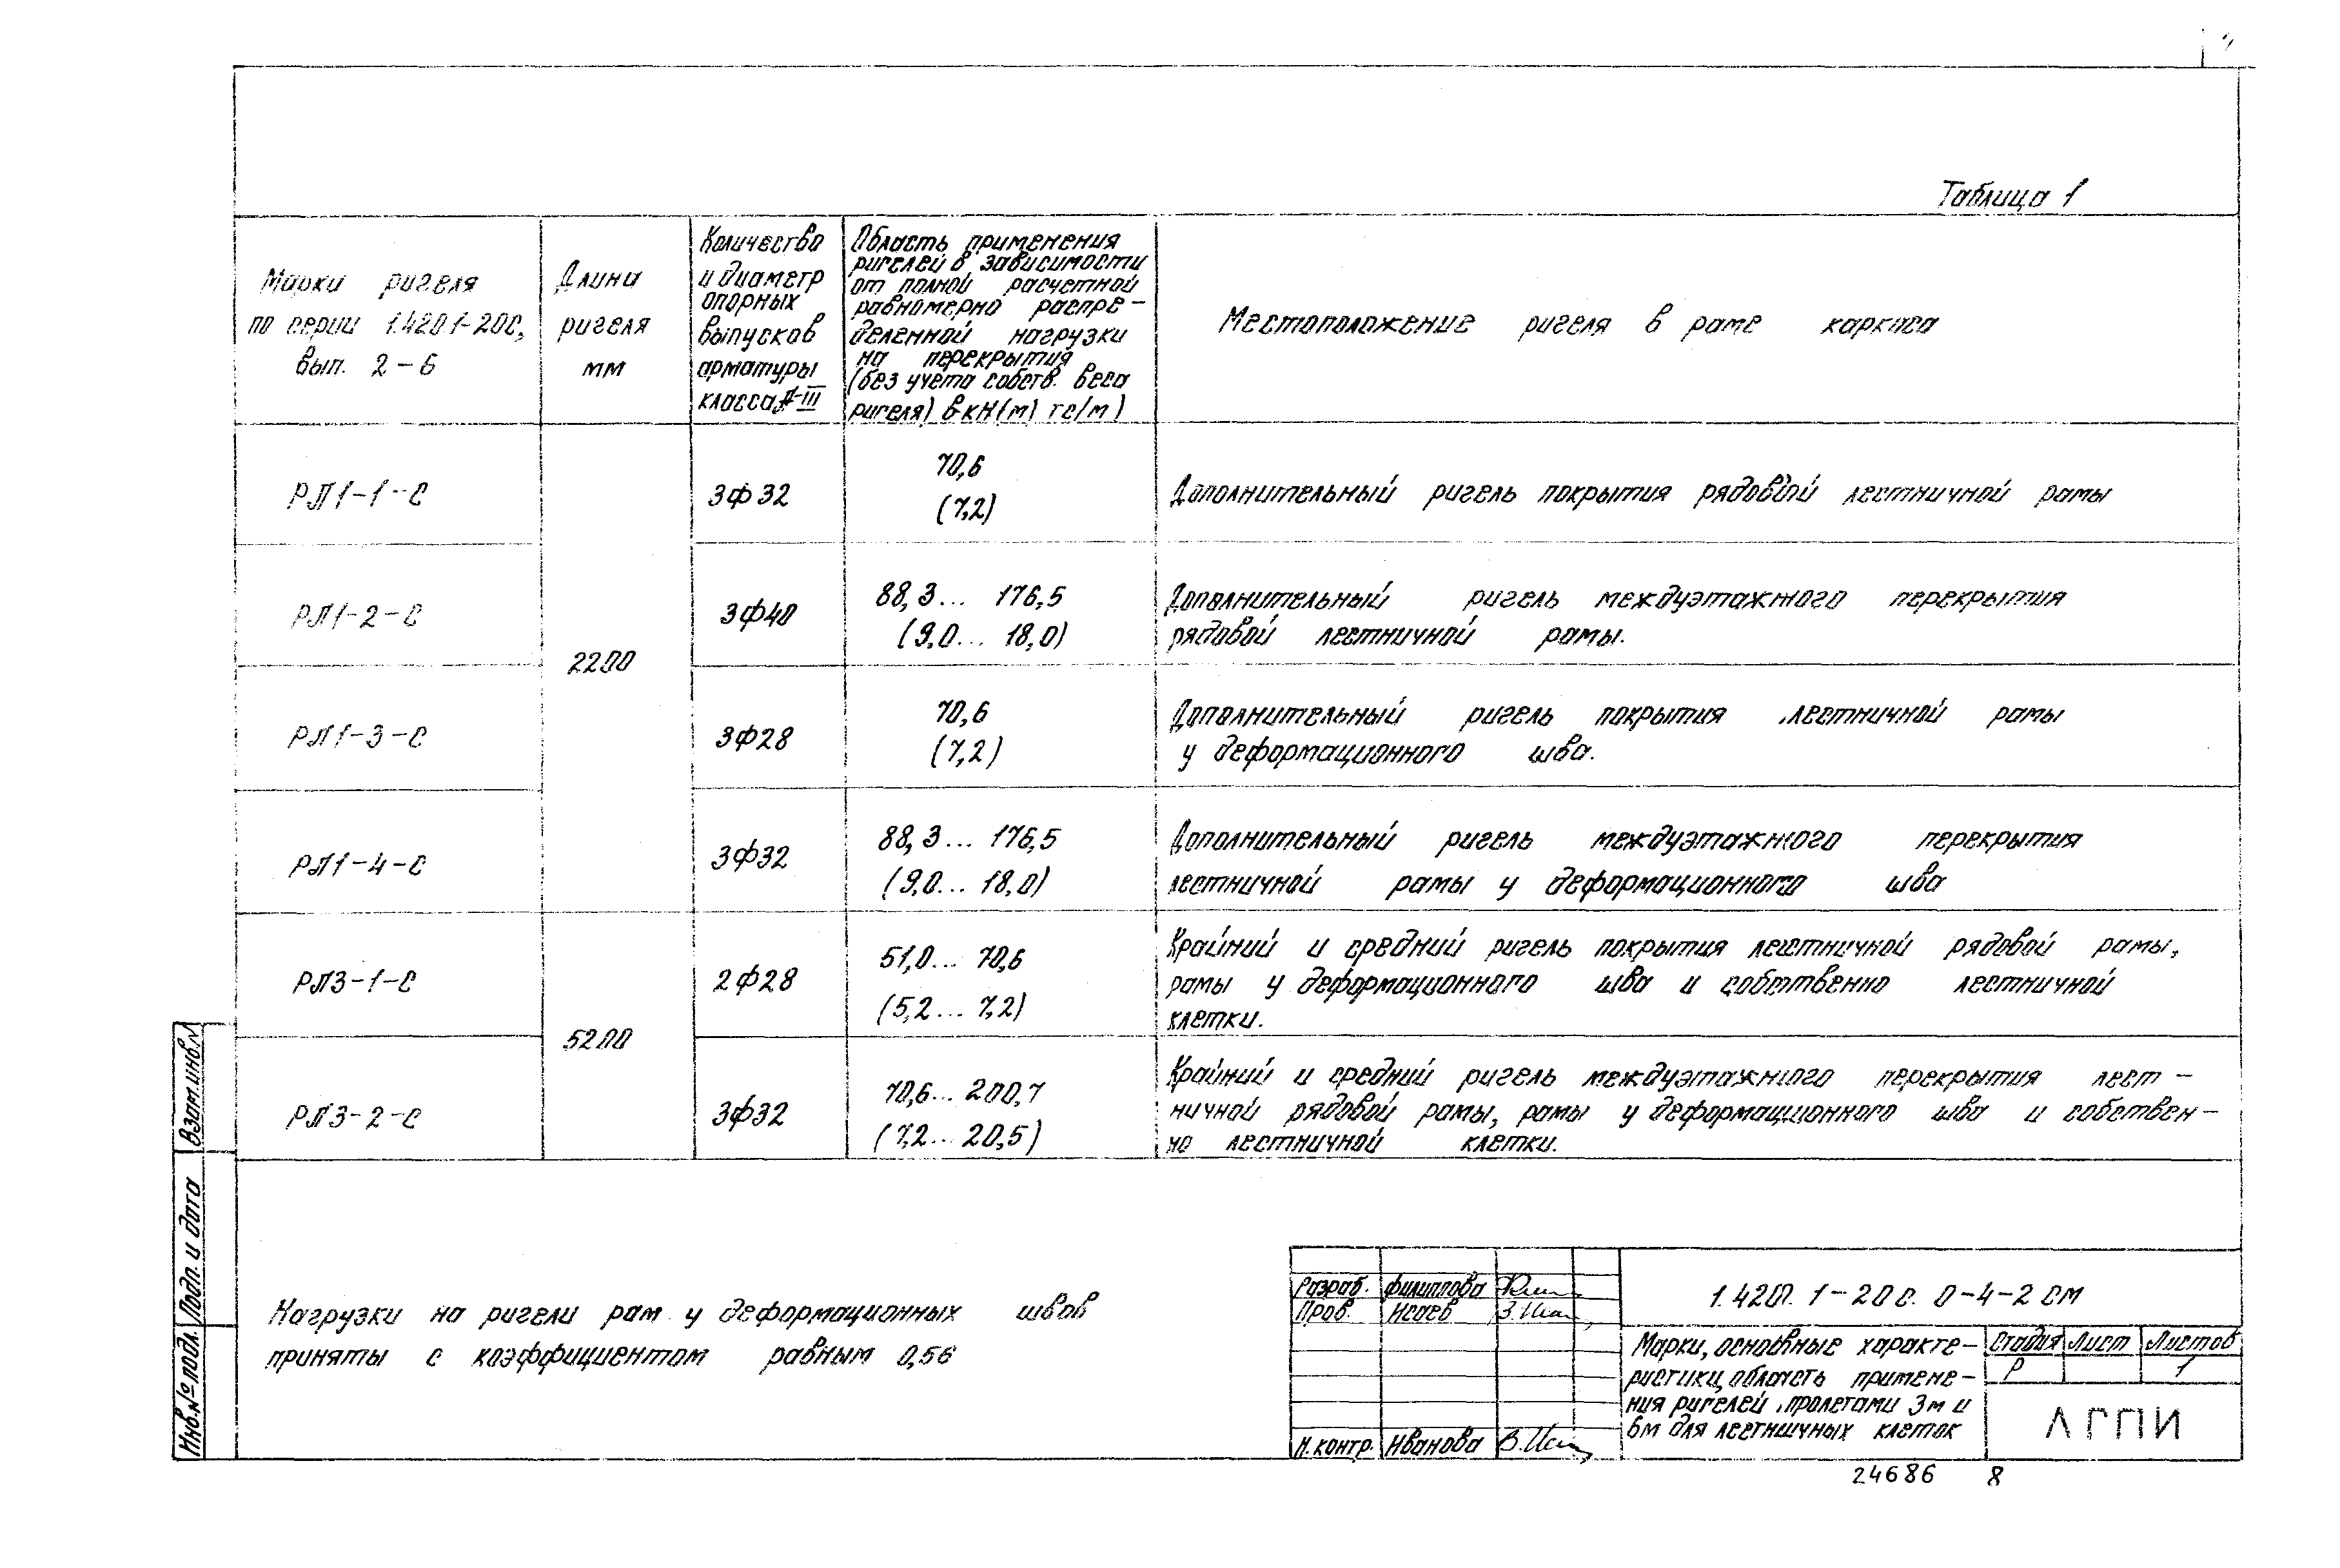 Таблица 1
Марки ригеля
по серии 1.420.1-20С,
вып. 2-6
Длина
ригеля
мм
Количество
и диаметр
опорных
выпусков
арматуры
класса А-III
Область применения
ригелей в зависимости
от полной расчетной
равномерно распре-
деленной нагрузки
на перекрытия
(без учета собств. веса
ригеля) в кН(м) тс/м)
Местоположение ригеля в раме каркаса
РЛ1-1-С
2200
3ф32
70,6
(7,2)
Дополнительный ригель покрытия рядовой лестничной рамы
РЛ1-2-С
3ф40
88,3... 176,5
(9,0... 18,0)
Дополнительный ригель междуэтажного перекрытия
рядовой лестничной рамы.
РЛ1-3-С
3ф28
70,6
(7,2)
Дополнительный ригель покрытия лестничной рамы
у деформационного шва.
РЛ1-4-С
3ф32
88,3... 176,5
(9,0... 18,0)
Дополнительный ригель междуэтажного перекрытия
лестничной рамы у деформационного шва
РЛ3-1-С
5200
2ф28
51,0... 70,6
(5,2... 7,2)
Крайний и средний ригель покрытия лестничной рядовой рамы,
рамы у деформационного шва и собственно лестничной
клетки.
РЛ3-2-С
3ф32
70,6... 200,7
(7,2... 20,5)
Крайний и средний ригель междуэтажного перекрытия лест-
ничной рядовой рамы, рамы у деформационного шва и собствен-
но лестничной клетки.
Нагрузки на ригели рам у деформационных швов
приняты с коэффициентом равным 0,56
Взам.инв.№
Подп. и дата
Инв.№ подл.
Разраб. Филиппова
Пров. Исаев
Н.контр. Иванова
1.420.1-20с.0-4-2СМ
Марки, основные характе-
ристики, область примене-
ния ригелей, пролетами 3м и
6м для лестничных клеток
Стадия Лист Листов
Р 1
ЛГПИ
24686 8